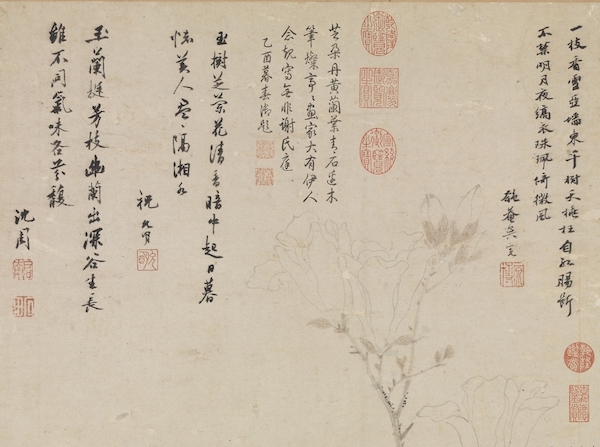 一枝香雪亞墻東千樹夭桃枉自紅腸斷
不禁明月夜縞衣珠珮倚微風
匏菴吳寬
芝朵丹黃蘭葉青石邊木
筆燦亭〻畫家大有伊人
念寫無非謝氏庭
乙酉暮春御題
玉樹芝花清香暗中起日暮
懷美人盈〻隔湘水
祝允明
玉蘭挺芳枝幽蘭出深谷生長
雖不同氣味各芬馥
沈周